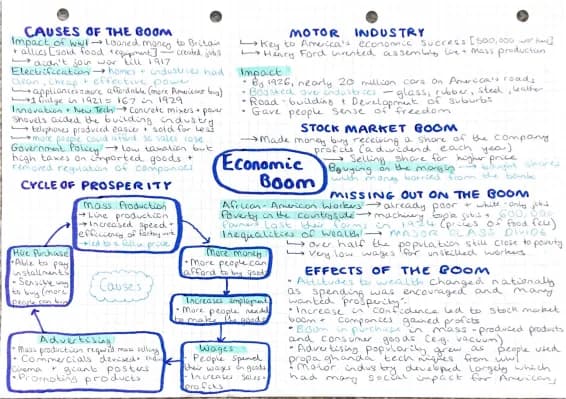 CAUSES OF THE BOOM
Impact of WWI → Loaned money to Britain
+ allies [sold food + equipment] → created jobs
→ didn't join war till 1917
Electrification → homes + industries had
clean, cheap + effective power
→ appliances more affordable (more Americans buy)
→ 1 fridge in 1921 = 167 in 1929
Innovation + New Tech → Concrete mixers + power
shovels aided the building industry
→ telephones produced easier + sold for less
→ more people could afford so sales rose
Government Policy → low taxation but
high taxes on imported goods +
removed regulation of companies
CYCLE OF PROSPERITY
Mass Production
→ Line production
→ Increased speed +
efficiency of factory work
• Led to a fall in price
More money
• More people can
afford to buy goods
Increases Employment
• More people needed
to make the goods
Wages
- People spend
their wages on goods
- Increases sales +
profits
Advertising
• Mass production required mass selling
• Commercials devised
cinema + giant posters
• Promoting products
Hire Purchase
• Able to pay
installments
• Sensitive way
to buy (more
people can buy)
Causes
Economic
Boom
MOTOR INDUSTRY
→ Key to America's economic success [500,000 workers]
→ Henry Ford invented assembly line + Mass production
Impact
• By 1926, nearly 20 million cars on America's roads
• Boosted other industries — glass, rubber, steel, leather
• Road-building + Development of suburbs
• Gave people sense of freedom
STOCK MARKET BOOM
→ Made money buy receiving a share of the company
profits (a dividend each year)
→ Selling share for higher price
Buying on the margin → bought shares
with money borrowed from the bank
MISSING OUT ON THE BOOM
African-American Workers → already poor + white-only jobs
Poverty in the countryside → machinery took jobs + 600,000
farmers lost their farms in 1924 (prices of food fell)
Inequalities of Wealth → MAJOR CLASS DIVIDE
→ over half the population still close to poverty
→ Very low wages for unskilled workers
EFFECTS OF THE BOOM
• Attitudes to wealth changed nationally
as spending was encouraged and many
wanted 'prosperity'
• Increase in confidence led to stock market
boom + companies gained profits
• Boom in purchase in mass-produced products
and consumer goods (e.g. vacuum)
• Advertising popularity grew as people used
propaghanda techniques from WWI
• Motor industry developed largely which
had many social impact for Americans